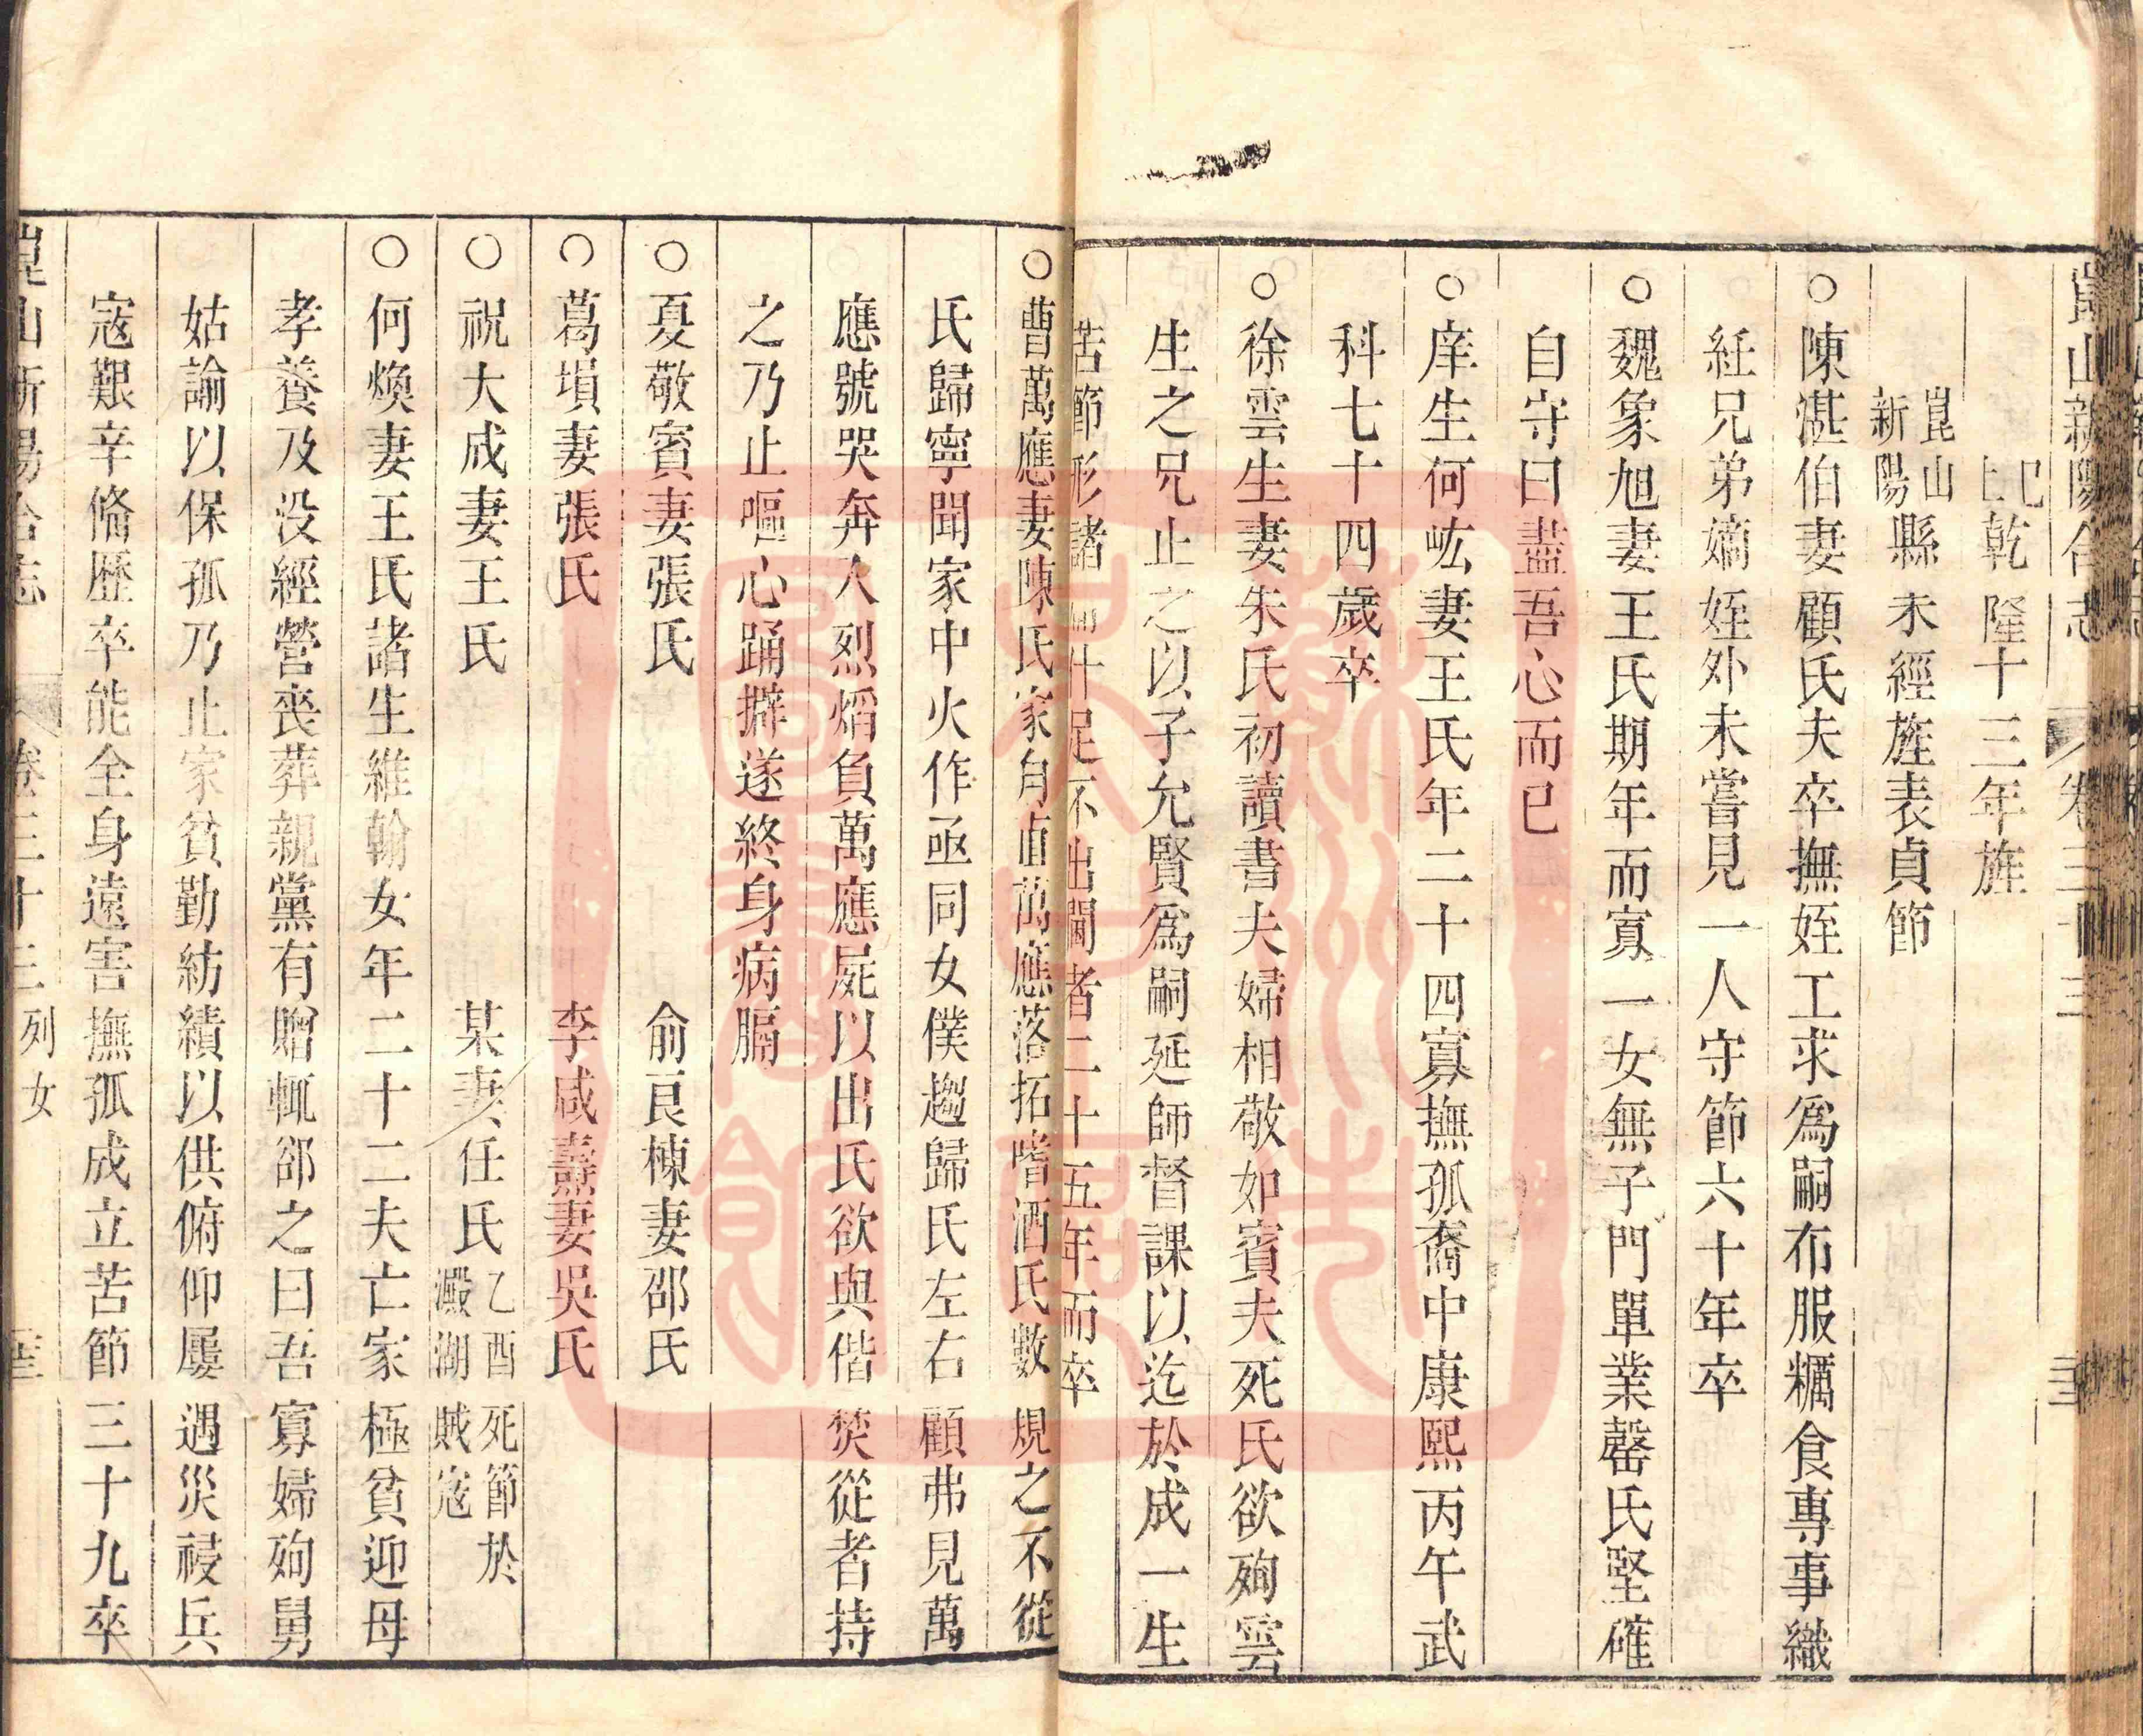 崑山新陽合志 卷三十三
已上乾隆十三年旌
崑山新陽縣未經旌表貞節
○陳湛伯妻顧氏夫卒撫姪工求爲嗣布服糲食專事織
紝兄弟嫡姪外未嘗見一人守節六十年卒
○魏象旭妻王氏期年而寡一女無子門單業罄氏堅確
自守曰盡吾心而已
○庠生何岤妻王氏年二十四寡撫孤裔中康熙丙午武
科七十四歲卒
○徐雲生妻朱氏初讀書夫婦相敬如賓夫死氏欲殉雲
生之兄止之以子允賢爲嗣延師督課以迄於成一生
苦節形諸 什足不出閫者二十五年而卒
○曹萬應妻陳氏家 萬應落拓嗜酒氏數規之不從
氏歸寧聞家中火作亟同女僕趨歸氏左右顧弗見萬
應號哭奔入烈焰負萬應屍以出氏欲與偕焚從者持
之乃止嘔心踊擗遂終身病膈
○夏敬賓妻張氏 俞艮棟妻邵氏
○葛塤妻張氏 李咸燾妻吳氏
○祝大成妻王氏 某妻任氏乙酉死節於澱湖賊寇
○何煥妻王氏諸生維翰女年二十二夫亡家極貧迎母
孝養及没經營喪葬親黨有贈輒郤之曰吾寡婦殉舅
姑論以保孤乃止家貧勤紡績以供俯仰屢遇災祲兵
寇艱辛俻歷卒能全身遠害撫孤成立苦節三十九卒
崑山新陽合志 卷三十三 列女